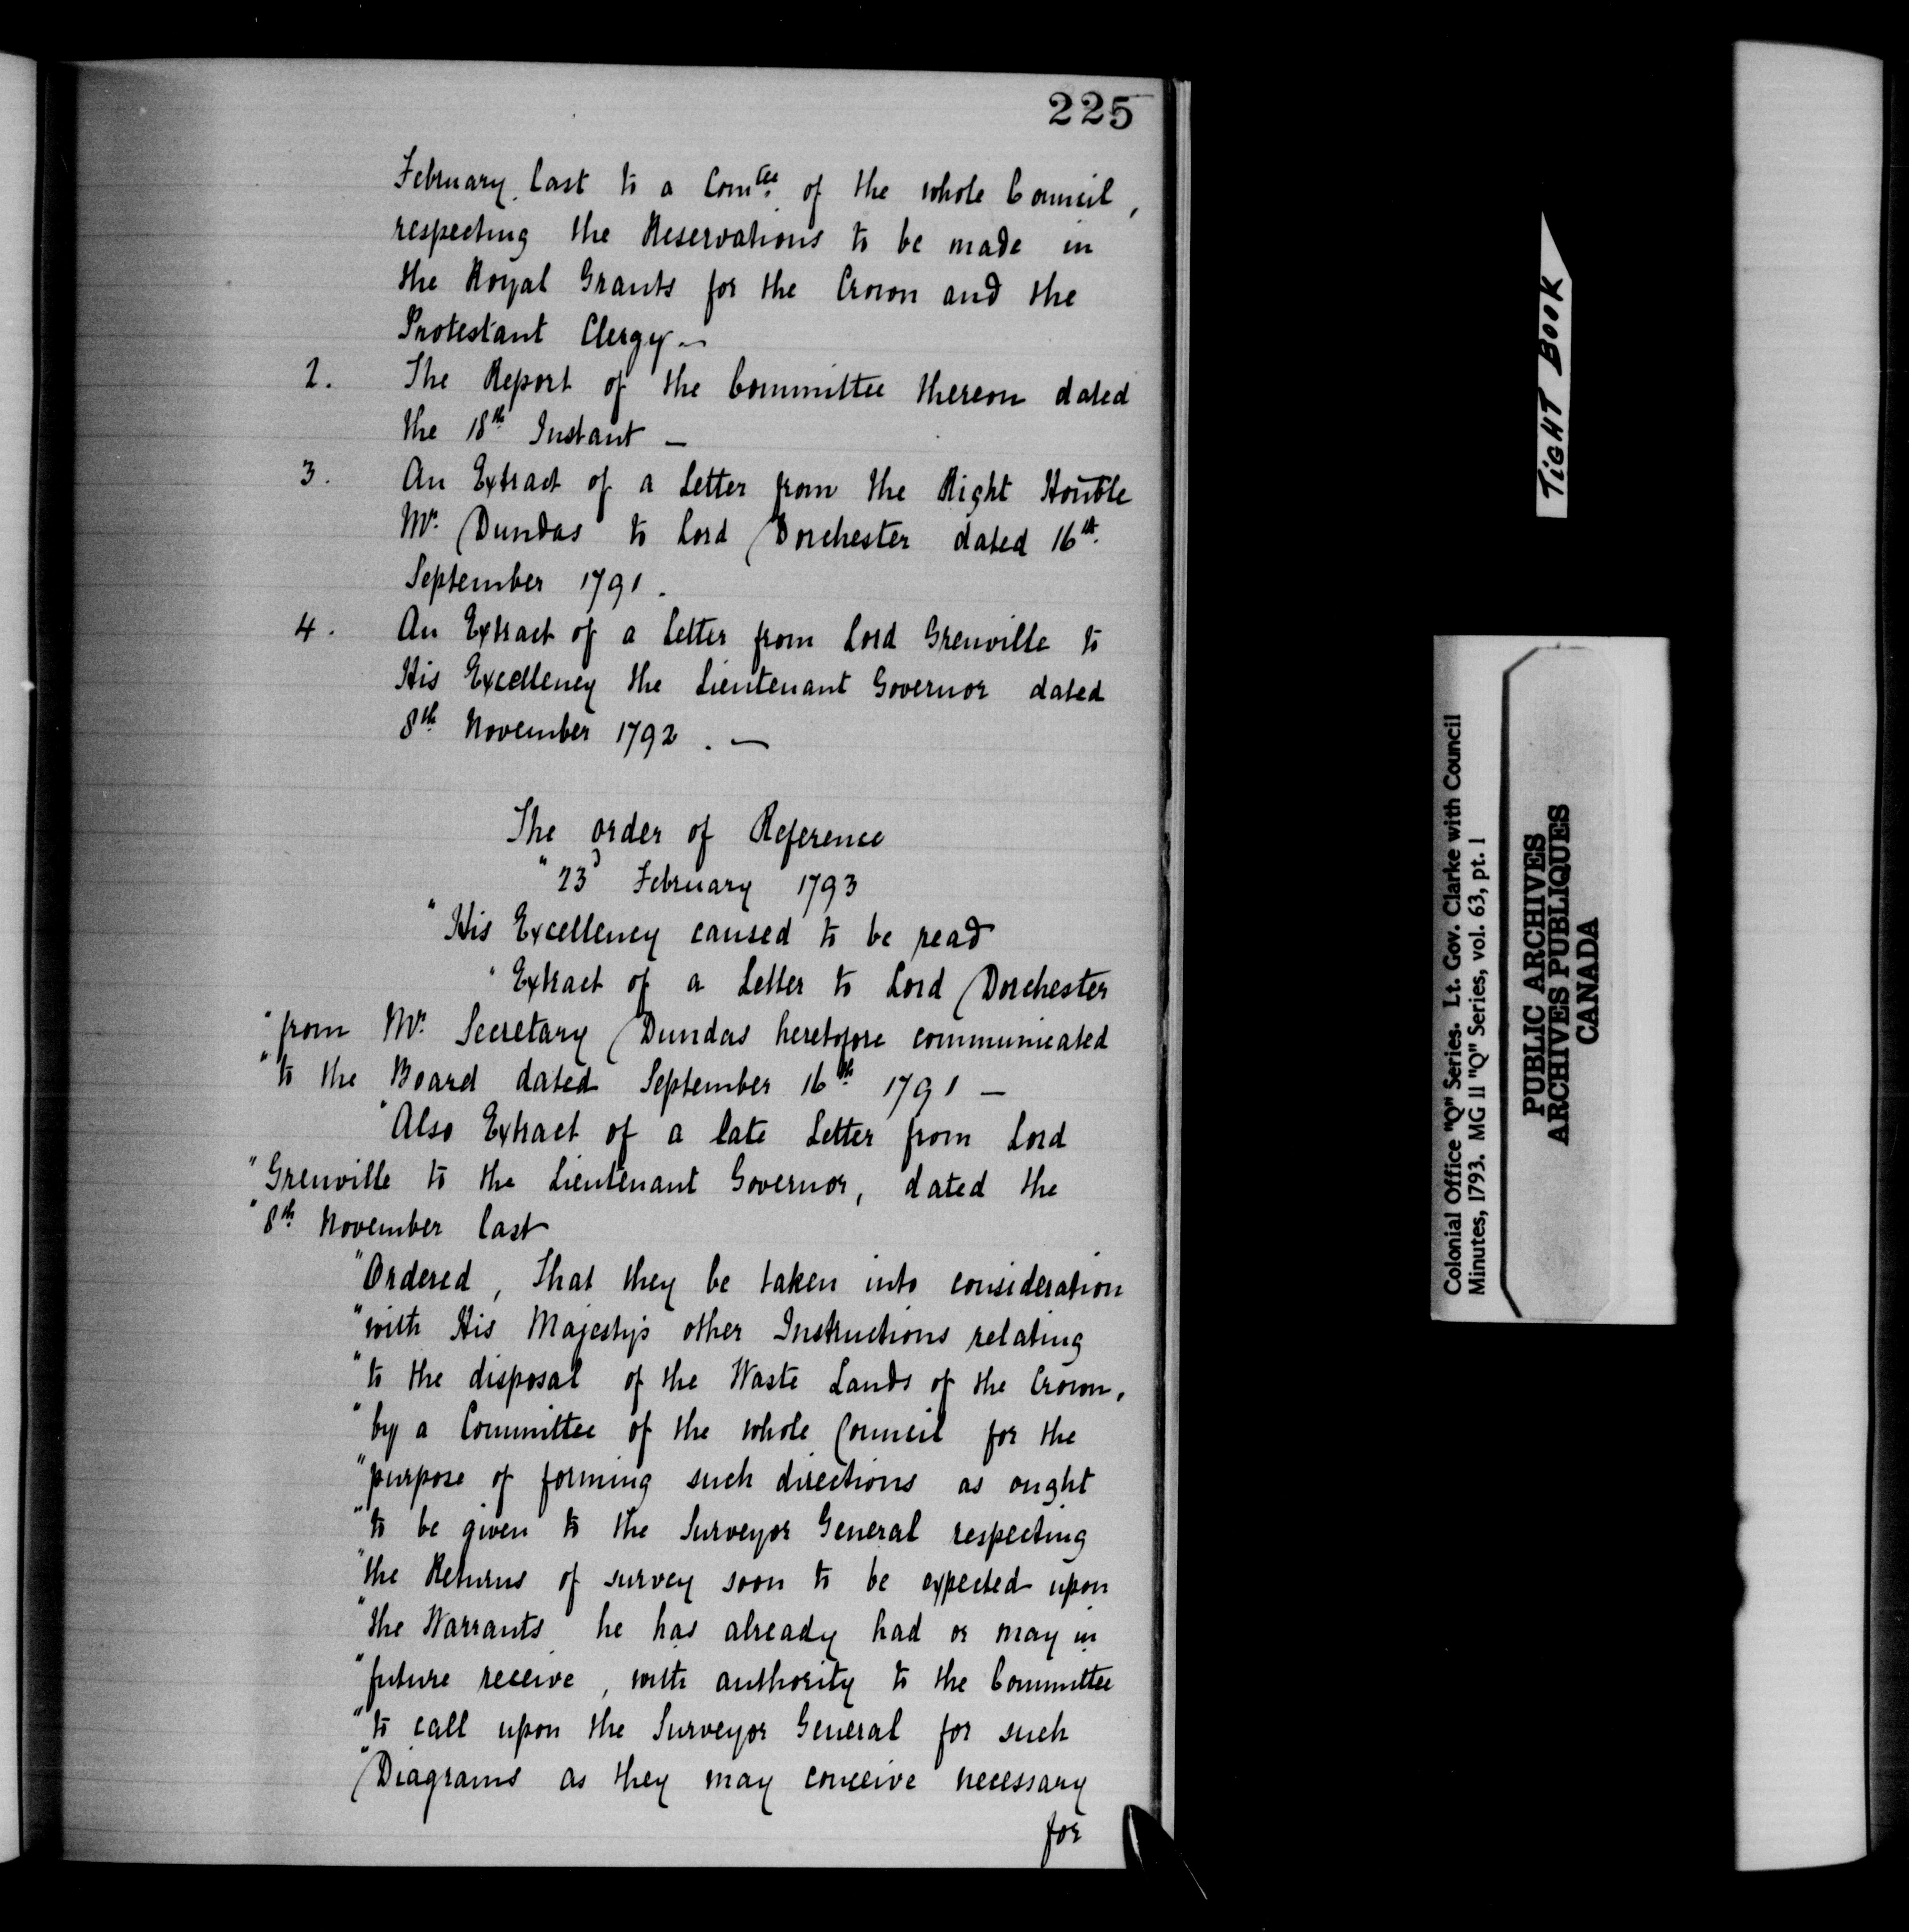 225
February last to a Comtee. of the whole Council,
respecting the Reservations to be made in
the Royal Grants for the Crown and the
Protestant Clergy —
2. The Report of the Committee thereon dated
the 18th Instant —
3. An Extract of a Letter from the Right Honble
Mr. Dundas to Lord Dorchester dated 16th.
September 1791.
4. An Extract of a Letter from Lord Grenville to
His Excellency the Lieutenant Governor dated
8th November 1792. —
The order of Reference
"23d February 1793
"His Excellency caused to be read
"Extract of a Letter to Lord Dorchester
"from Mr. Secretary Dundas heretofore communicated
"to the Board dated September 16th 1791 —
"Also Extract of a late Letter from Lord
"Grenville to the Lieutenant Governor, dated the
"8th November last
"Ordered, That they be taken into consideration
"with His Majesty's other Instructions relating
"to the disposal of the Waste Lands of the Crown,
"by a Committee of the whole Council for the
"purpose of forming such directions as ought
"to be given to the Surveyor General respecting
"the Returns of survey soon to be expected upon
"the Warrants he has already had or may in
"future receive, with authority to the Committee
"to call upon the Surveyor General for such
"Diagrams as they may conceive necessary
for
TIGHT BOOK
Colonial Office "Q" Series. Lt. Gov. Clarke with Council
Minutes, 1793. MG 11 "Q" Series, vol. 63, pt. 1
PUBLIC ARCHIVES
ARCHIVES PUBLIQUES
CANADA